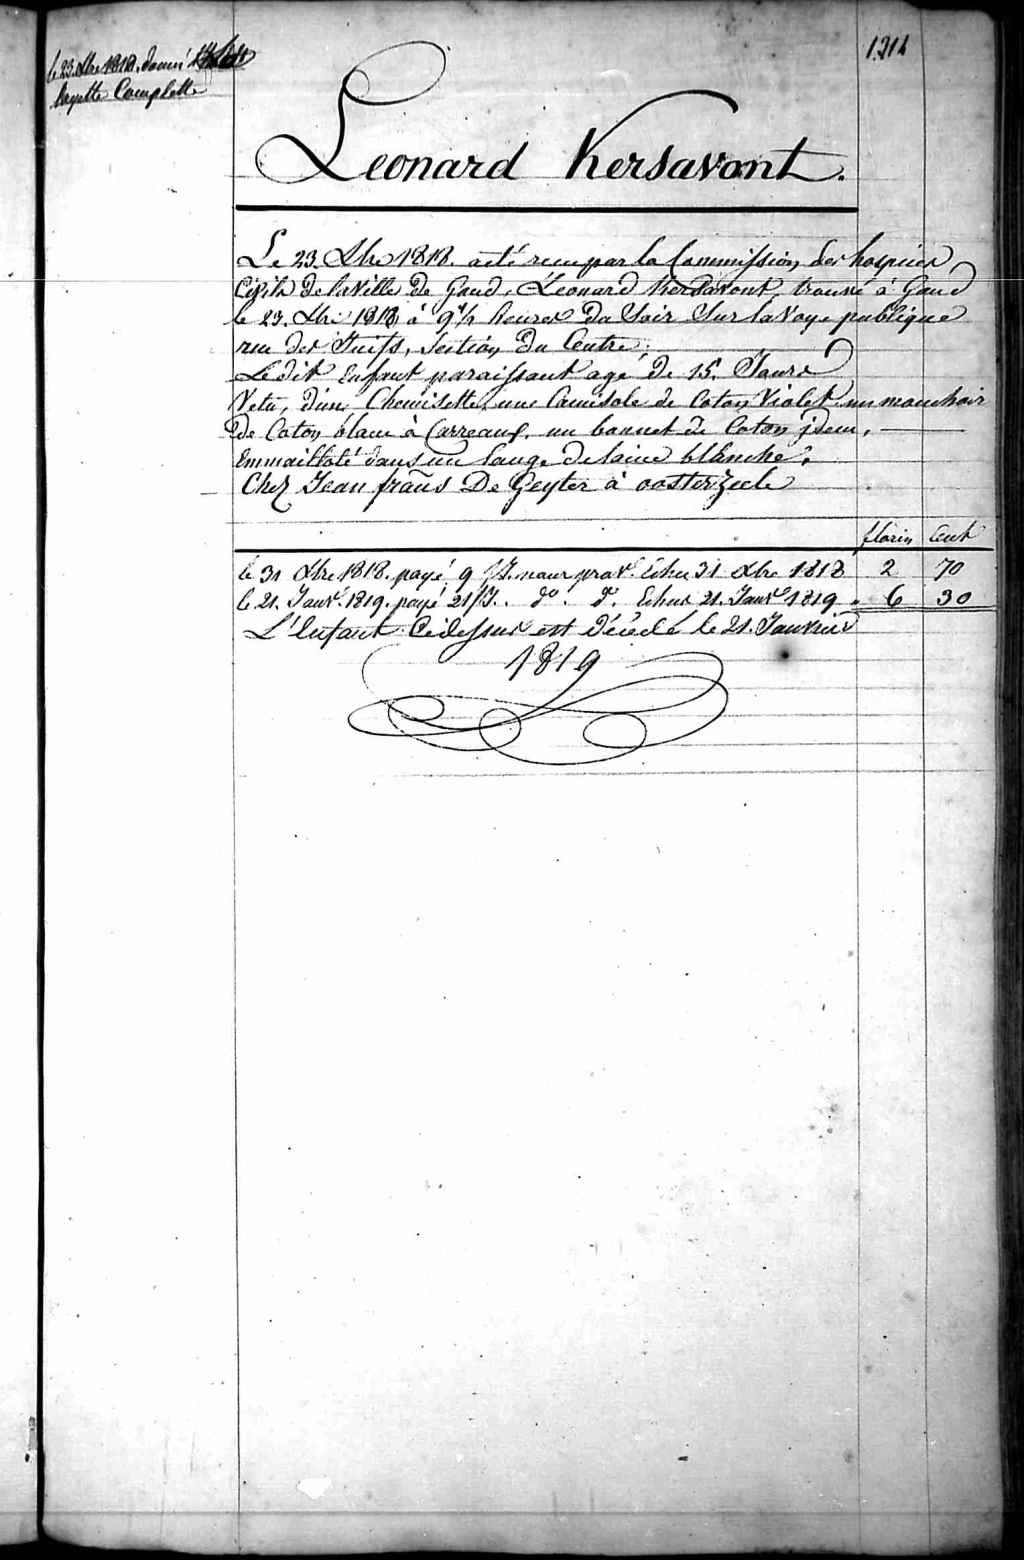 1314
le 23 Xbre 1818. donné
layette Complette
Leonard Kersavont.
Le 23 Xbre 1818. a été recu par la Commission des hospices
Civils de la Ville de Gand, Léonard Kersavont, trouvé à Gand
le 23. Xbre 1818 à 9 1/2 heures du Soir Sur la Voye publique
rue des Juifs, Section du Centre.
Le dit Enfant paraissant agé de 15. Jours
Vetu, d'une Chemisette, une Camisole de Coton Violet un mouchoir
de Coton blanc à Carreaux, un bonnet de Coton jdem,
Emmailloté dans un lange de laine blanche,
Chez Jean frans De Geyter à oosterzeele
florin Cent
le 31 Xbre 1818. payé 9 Echu 31 Xbre 1818 2 70
le 21. Janvr. 1819. payé 21 do. do. Echus 21. Janvr 1819 " 6 30
L'Enfant Cidessus est Décédé le 21. Janvier
1819